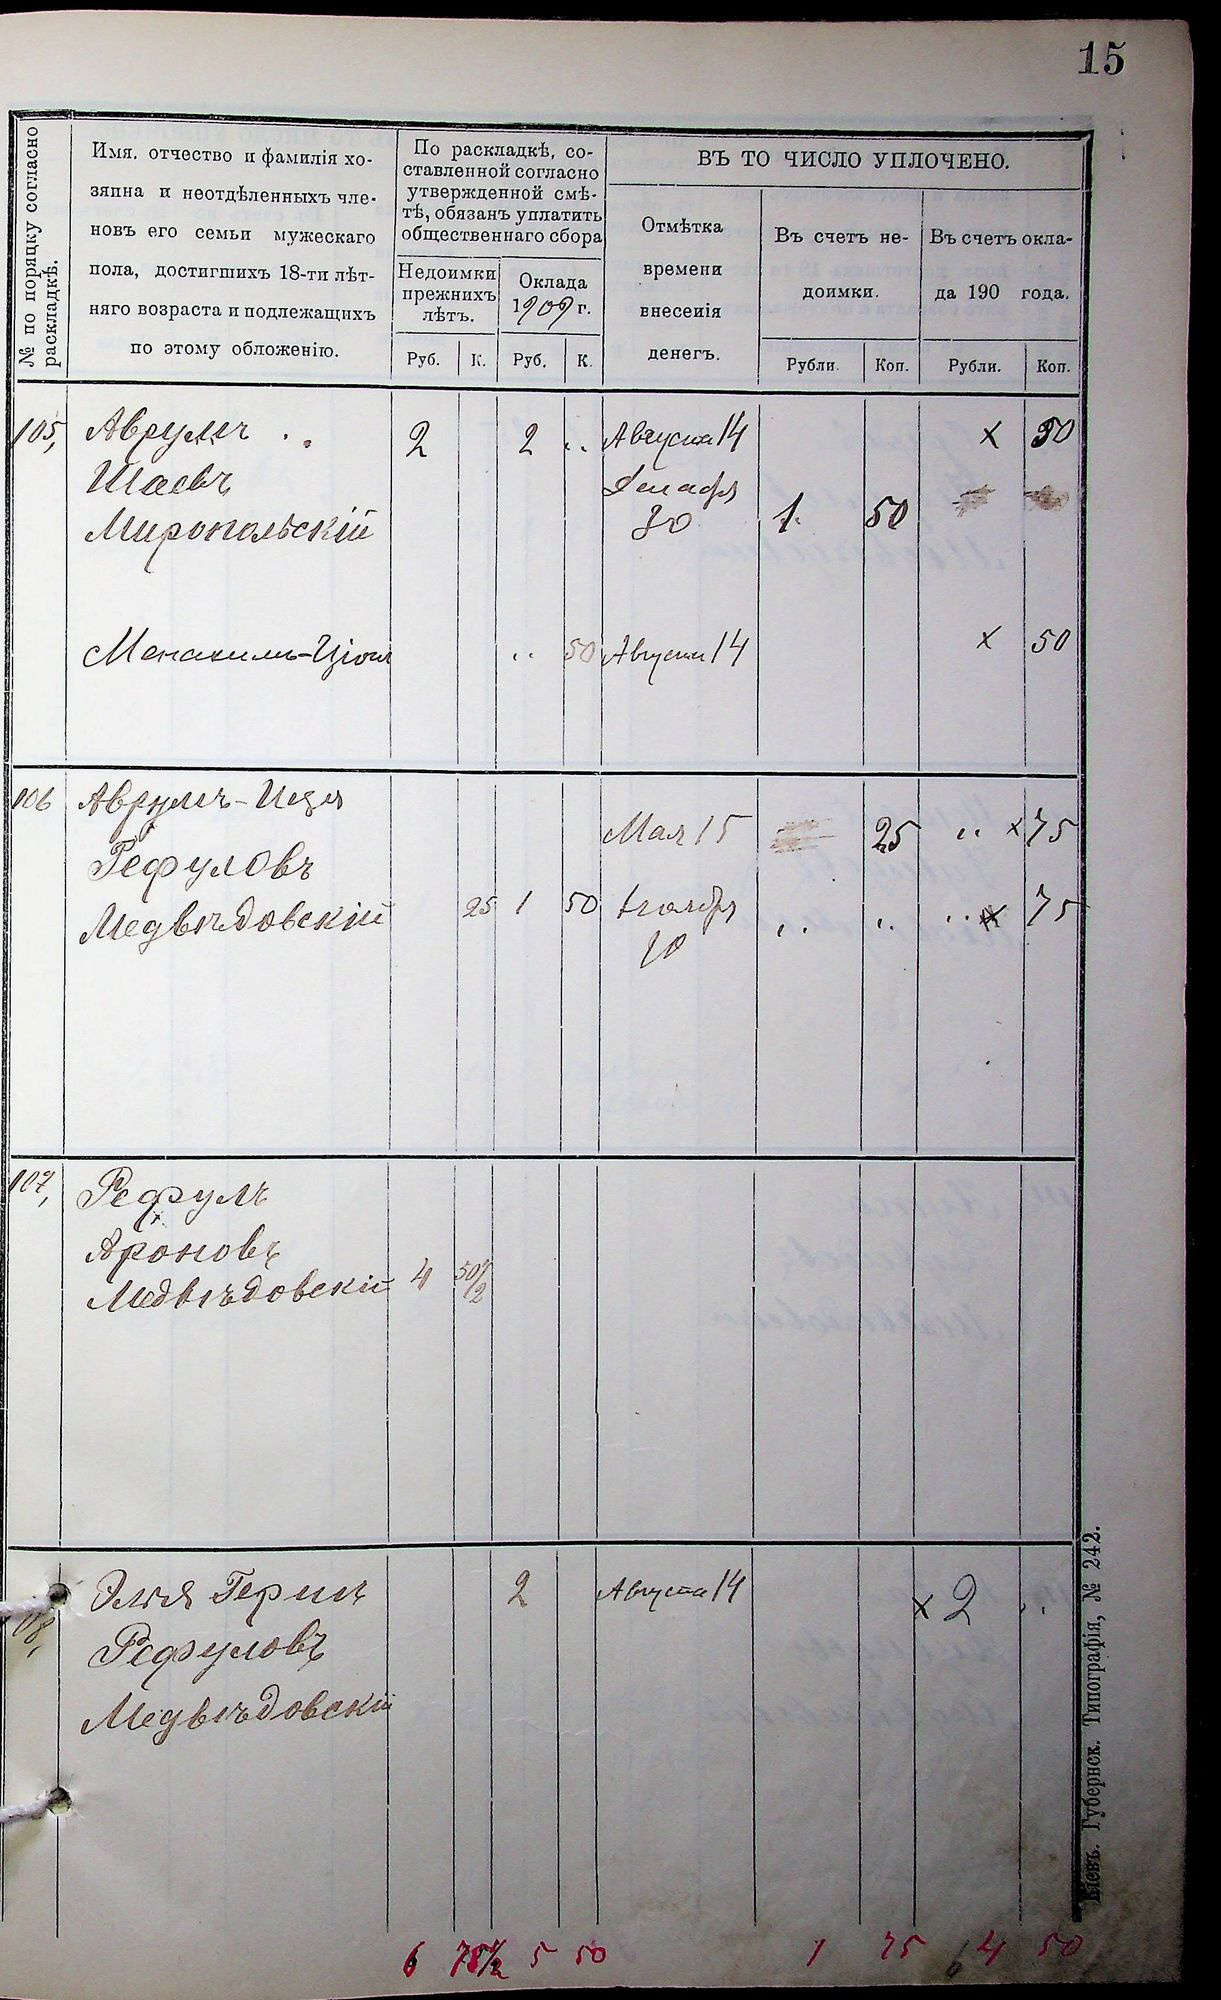 15
№ по порядку согласно
раскладкѣ.
Имя, отчество и фамилія хо-
зяина и неотдѣленныхъ чле-
новъ его семьи мужескаго
пола, достигшихъ 18-ти лѣт-
няго возраста и подлежащихъ
по этому обложенію.
По раскладкѣ, со-
ставленной согласно
утвержденной смѣ-
тѣ, обязанъ уплатить
общественнаго сбора
Недоимки
прежнихъ
лѣтъ.
Оклада
1909 г.
Руб. К. Руб. К.
ВЪ ТО ЧИСЛО УПЛОЧЕНО.
Отмѣтка
времени
внесенія
денегъ.
Въ счетъ не-
доимки.
Въ счетъ окла-
да 190 года.
Рубли. Коп. Рубли. Коп.
105, Аврумъ . . 2 2 .. Августа 14 x 50
Шаевъ Декабря
Миропольскій 30 1. 50
Менахимъ-Ціонъ .. 50 Августа 14 x 50
106 Аврумъ-Иця
Мая 15 25 .. x 75
Рефуловъ
Медвѣдовскій 25 1 50 Ноября .. .. .. x 75
10
107, Рефулъ
Ароновъ
Медвѣдовскій 4 50 1/2
108, Эля Гершъ 2 Августа 14 x 2 ..
Рефуловъ
Медвѣдовскій
6 75 1/2 5 50 1 75 4 50
Кіевъ. Губернск. Типографія, № 242.